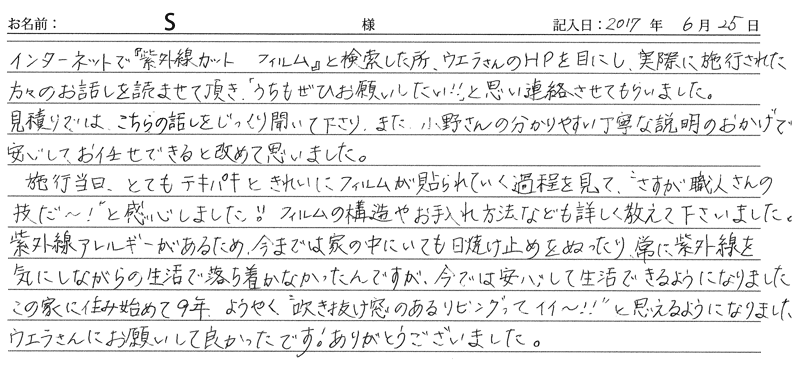 お名前： S 様 記入日：2017 年 6 月 25 日
インターネットで『紫外線カット フィルム』と検索した所、ウエラさんのHPを目にし、実際に施行された
方々のお話しを読ませて頂き、「うちもぜひお願いしたい!!」と思い連絡させてもらいました。
見積りでは、こちらの話しをじっくり聞いて下さり、また、小野さんの分かりやすい丁寧な説明のおかげで
安心してお任せできると改めて思いました。
施行当日、とてもテキパキときれいにフィルムが貼られていく過程を見て、“さすが職人さんの
技だ〜！”と感心しました!! フィルムの構造やお手入れ方法なども詳しく教えて下さいました。
紫外線アレルギーがあるため、今までは家の中にいても日焼け止めをぬったり、常に紫外線を
気にしながらの生活で落ち着かなかったんですが、今では安心して生活できるようになりました
この家に住み始めて9年、ようやく“吹き抜け窓のあるリビングってイイ〜!!”と思えるようになりました
ウエラさんにお願いして良かったです！ありがとうございました。